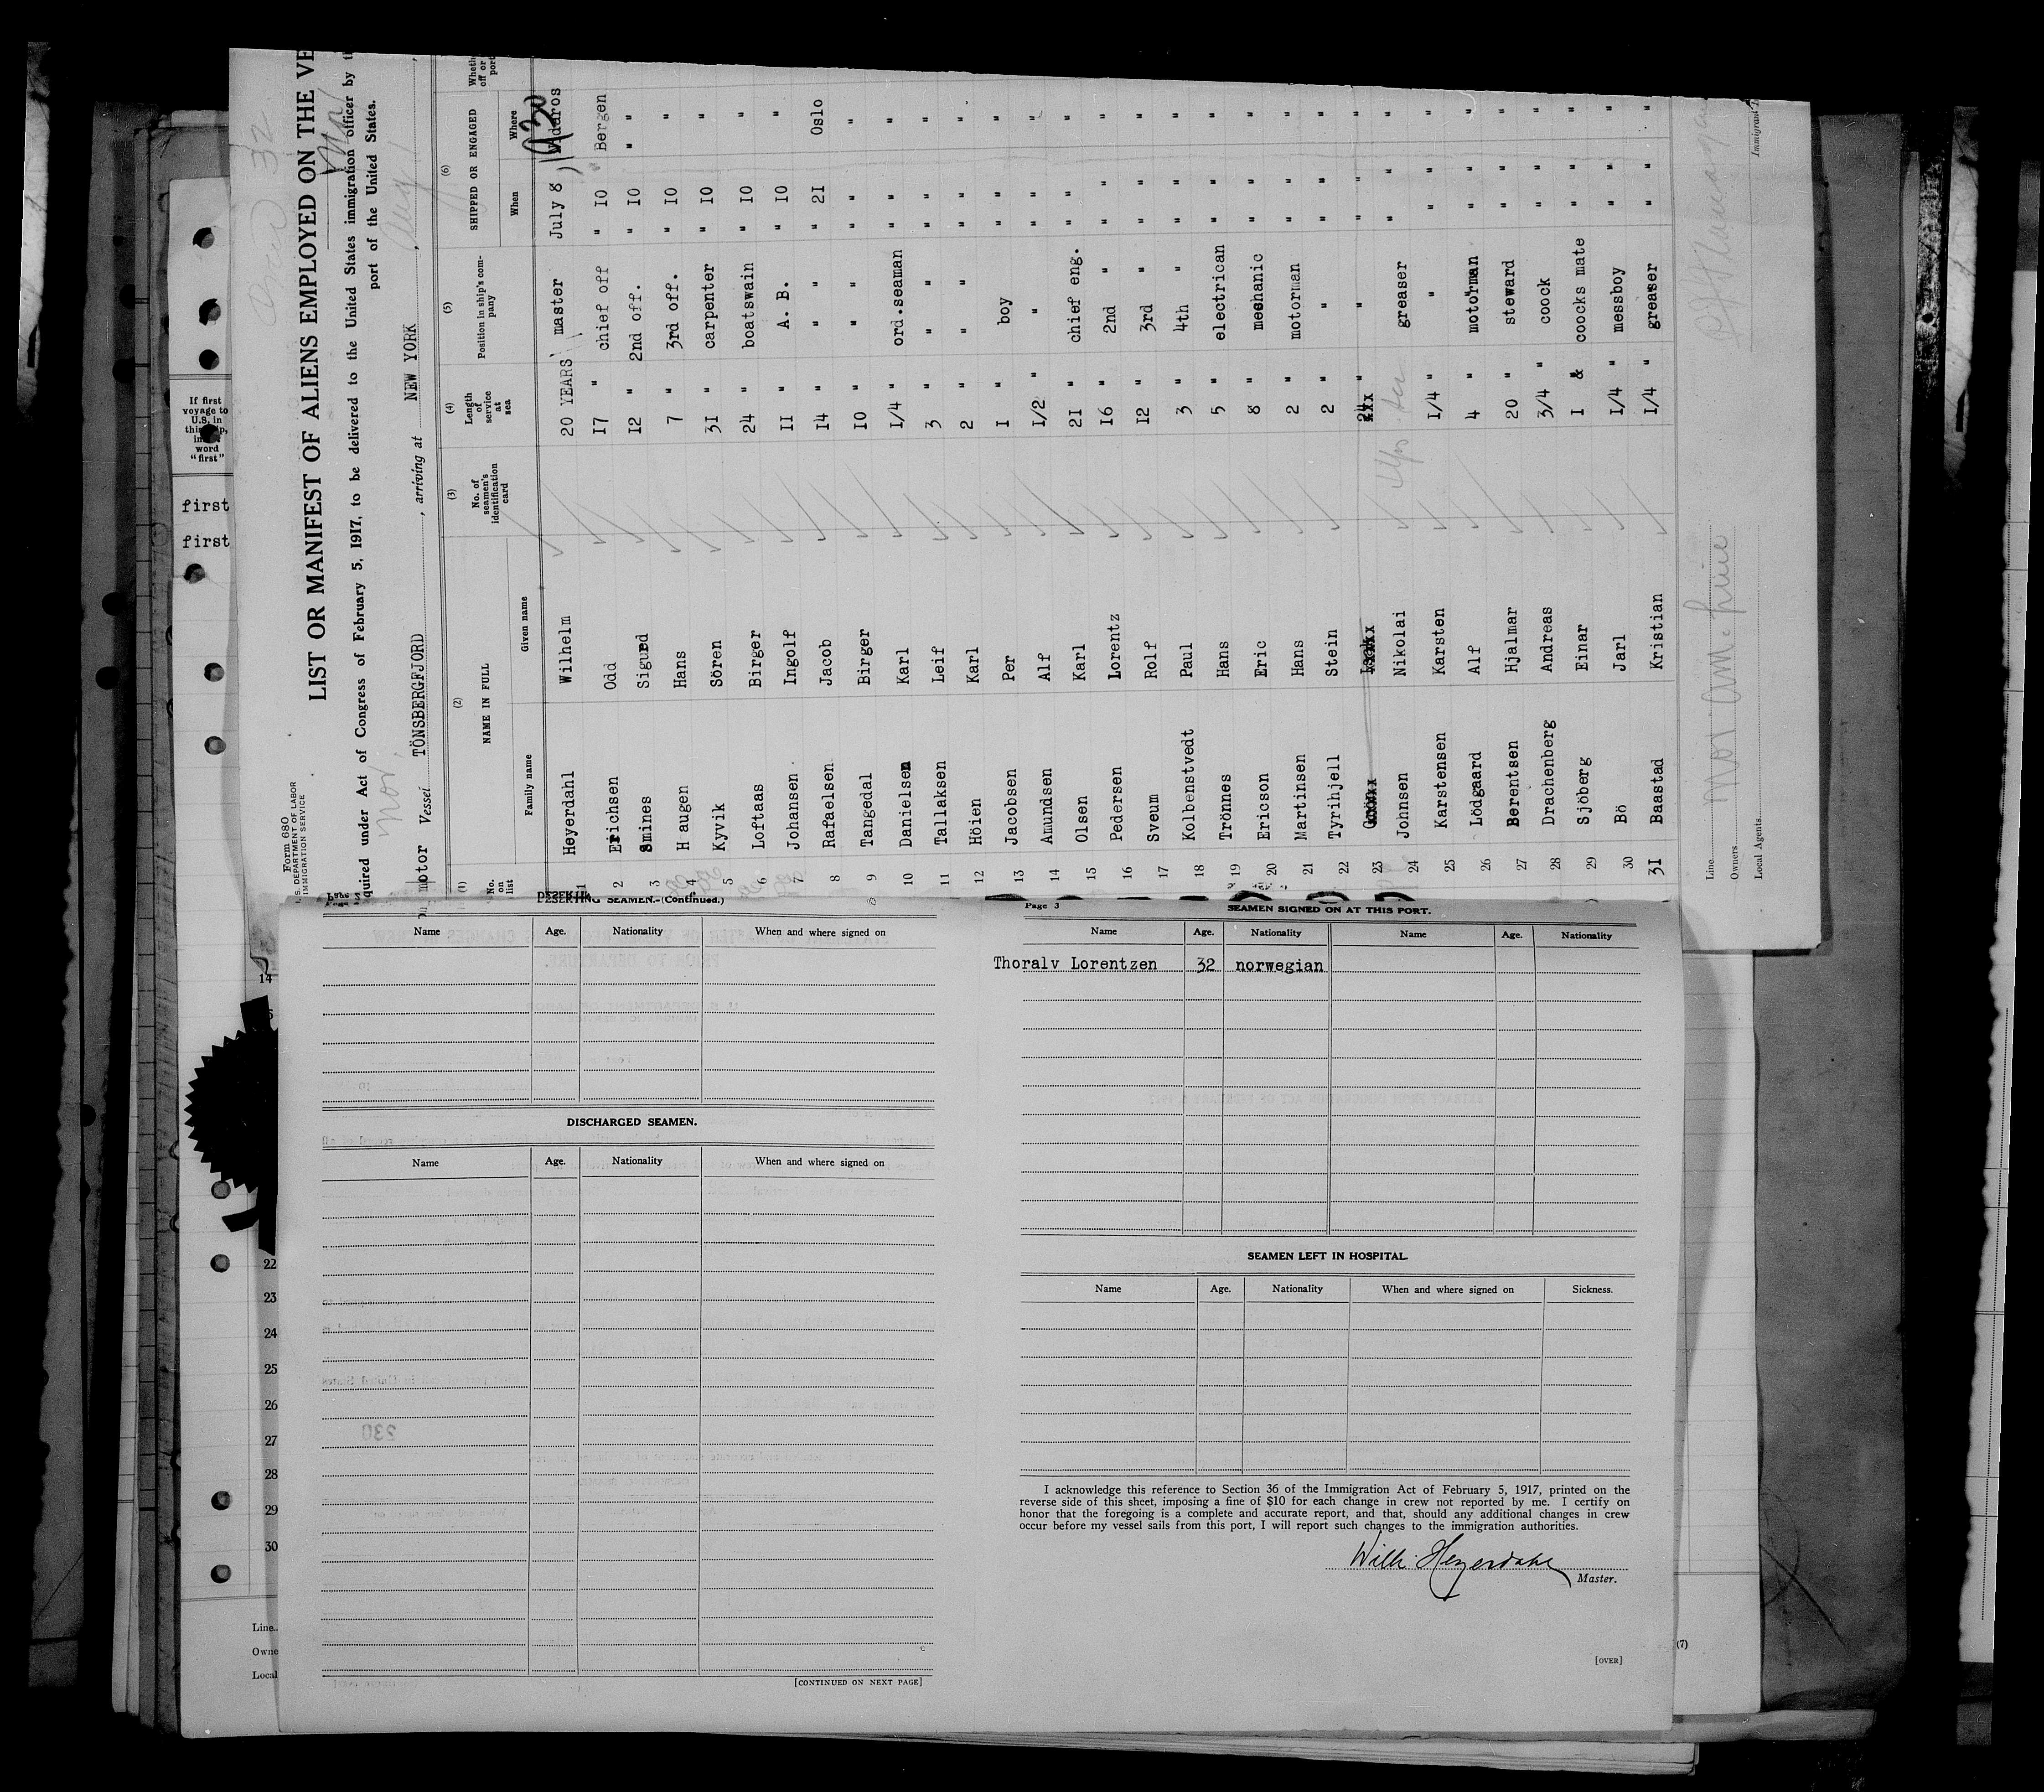 Form 680
U. S. DEPARTMENT OF LABOR
IMMIGRATION SERVICE
LIST OR MANIFEST OF ALIENS EMPLOYED ON THE VE
quired under Act of Congress of February 5, 1917, to be delivered to the United States immigration officer by t
port of the United States.
Nor.
motor Vessel TÖNSBERGFJORD, arriving at NEW YORK,
(1) (2) (3) (4) (5) (6)
No. on list NAME IN FULL No. of seamen's identification card Length of service at sea Position in ship's company SHIPPED OR ENGAGED
Family name Given name When Where
1930
1 Heyerdahl Wilhelm 20 YEARS master July 8
2 Erichsen Odd 17 " chief off " 10 Bergen
3 Smines Sigurd 12 " 2nd off. " 10 " "
4 Haugen Hans 7 " 3rd off. " 10 "
5 Kyvik Sören 31 " carpenter " 10 "
6 Loftaas Birger 24 " boatswain " 10 "
7 Johansen Ingolf 11 " A. B. " 10 "
8 Rafaelsen Jacob 14 " " " " 21 Oslo
9 Tangedal Birger 10 " " " " " "
10 Danielsen Karl 1/4 " ord.seaman " " "
11 Tallaksen Leif 3 " " " " " "
12 Höien Karl 2 " " " " " "
13 Jacobsen Per 1 " boy " " "
14 Amundsen Alf 1/2 " " " " "
15 Olsen Karl 21 " chief eng. " " "
16 Pedersen Lorentz 16 " 2nd " " " "
17 Sveum Rolf 12 " 3rd " " " "
18 Kolbenstvedt Paul 3 " 4th " " " "
19 Trönnes Hans 5 " electrican " " "
20 Ericson Eric 8 " meshanic " " "
21 Martinsen Hans 2 " motorman " " "
22 Tyrihjell Stein 2 " " " " "
23 " " " " "
24 Johnsen Nikolai greaser " " "
25 Karstensen Karsten 1/4 " " " " "
26 Lödgaard Alf 4 " motorman " " "
27 Berentsen Hjalmar 20 " steward " " "
28 Drachenberg Andreas 3/4 " coock " " "
29 Sjöberg Einar 1 & " coocks mate " " "
30 Bö Jarl 1/4 " messboy " " "
31 Baastad Kristian 1/4 " greaser " " "
Line Nor. Am. Line
Owners
Local Agents
If first voyage to U.S. in this ship, word "first"
first
first
14
22
23
24
25
26
27
28
29
30
Line
Owne
Local
(7)
SEAMEN.—(Continued.)
Name Age. Nationality When and where signed on
DISCHARGED SEAMEN.
Name Age. Nationality When and where signed on
[CONTINUED ON NEXT PAGE]
Page 3
SEAMEN SIGNED ON AT THIS PORT.
Name Age. Nationality Name Age. Nationality
Thoralv Lorentzen 32 norwegian
SEAMEN LEFT IN HOSPITAL.
Name Age. Nationality When and where signed on Sickness.
I acknowledge this reference to Section 36 of the Immigration Act of February 5, 1917, printed on the
reverse side of this sheet, imposing a fine of $10 for each change in crew not reported by me. I certify on
honor that the foregoing is a complete and accurate report, and that, should any additional changes in crew
occur before my vessel sails from this port, I will report such changes to the immigration authorities.
Wilh. Heyerdahl
Master.
[OVER]